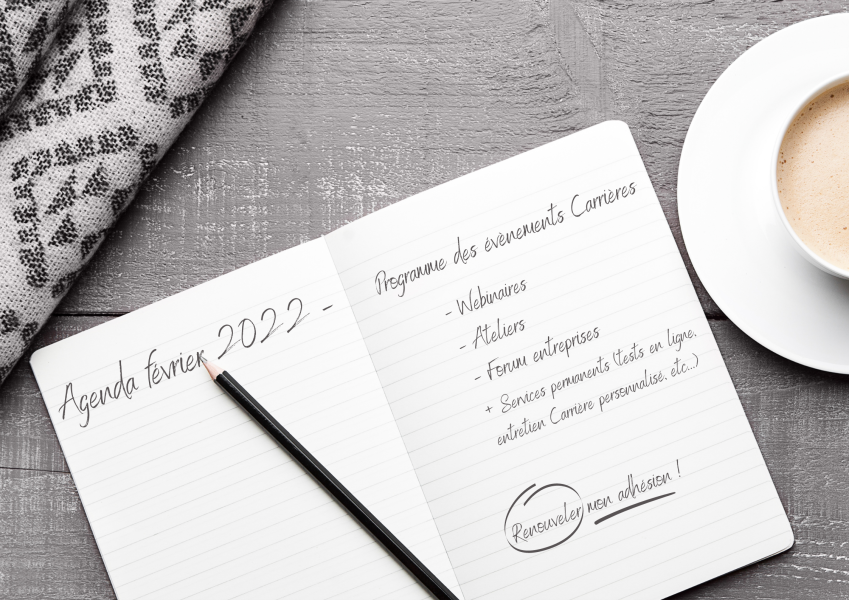 Agenda février 2022 -
Programme des évènements Carrières
- Webinaires
- Ateliers
- Forum entreprises
+ Services permanents (tests en ligne,
entretien Carrière personnalisé, etc...)
Renouveler mon adhésion !